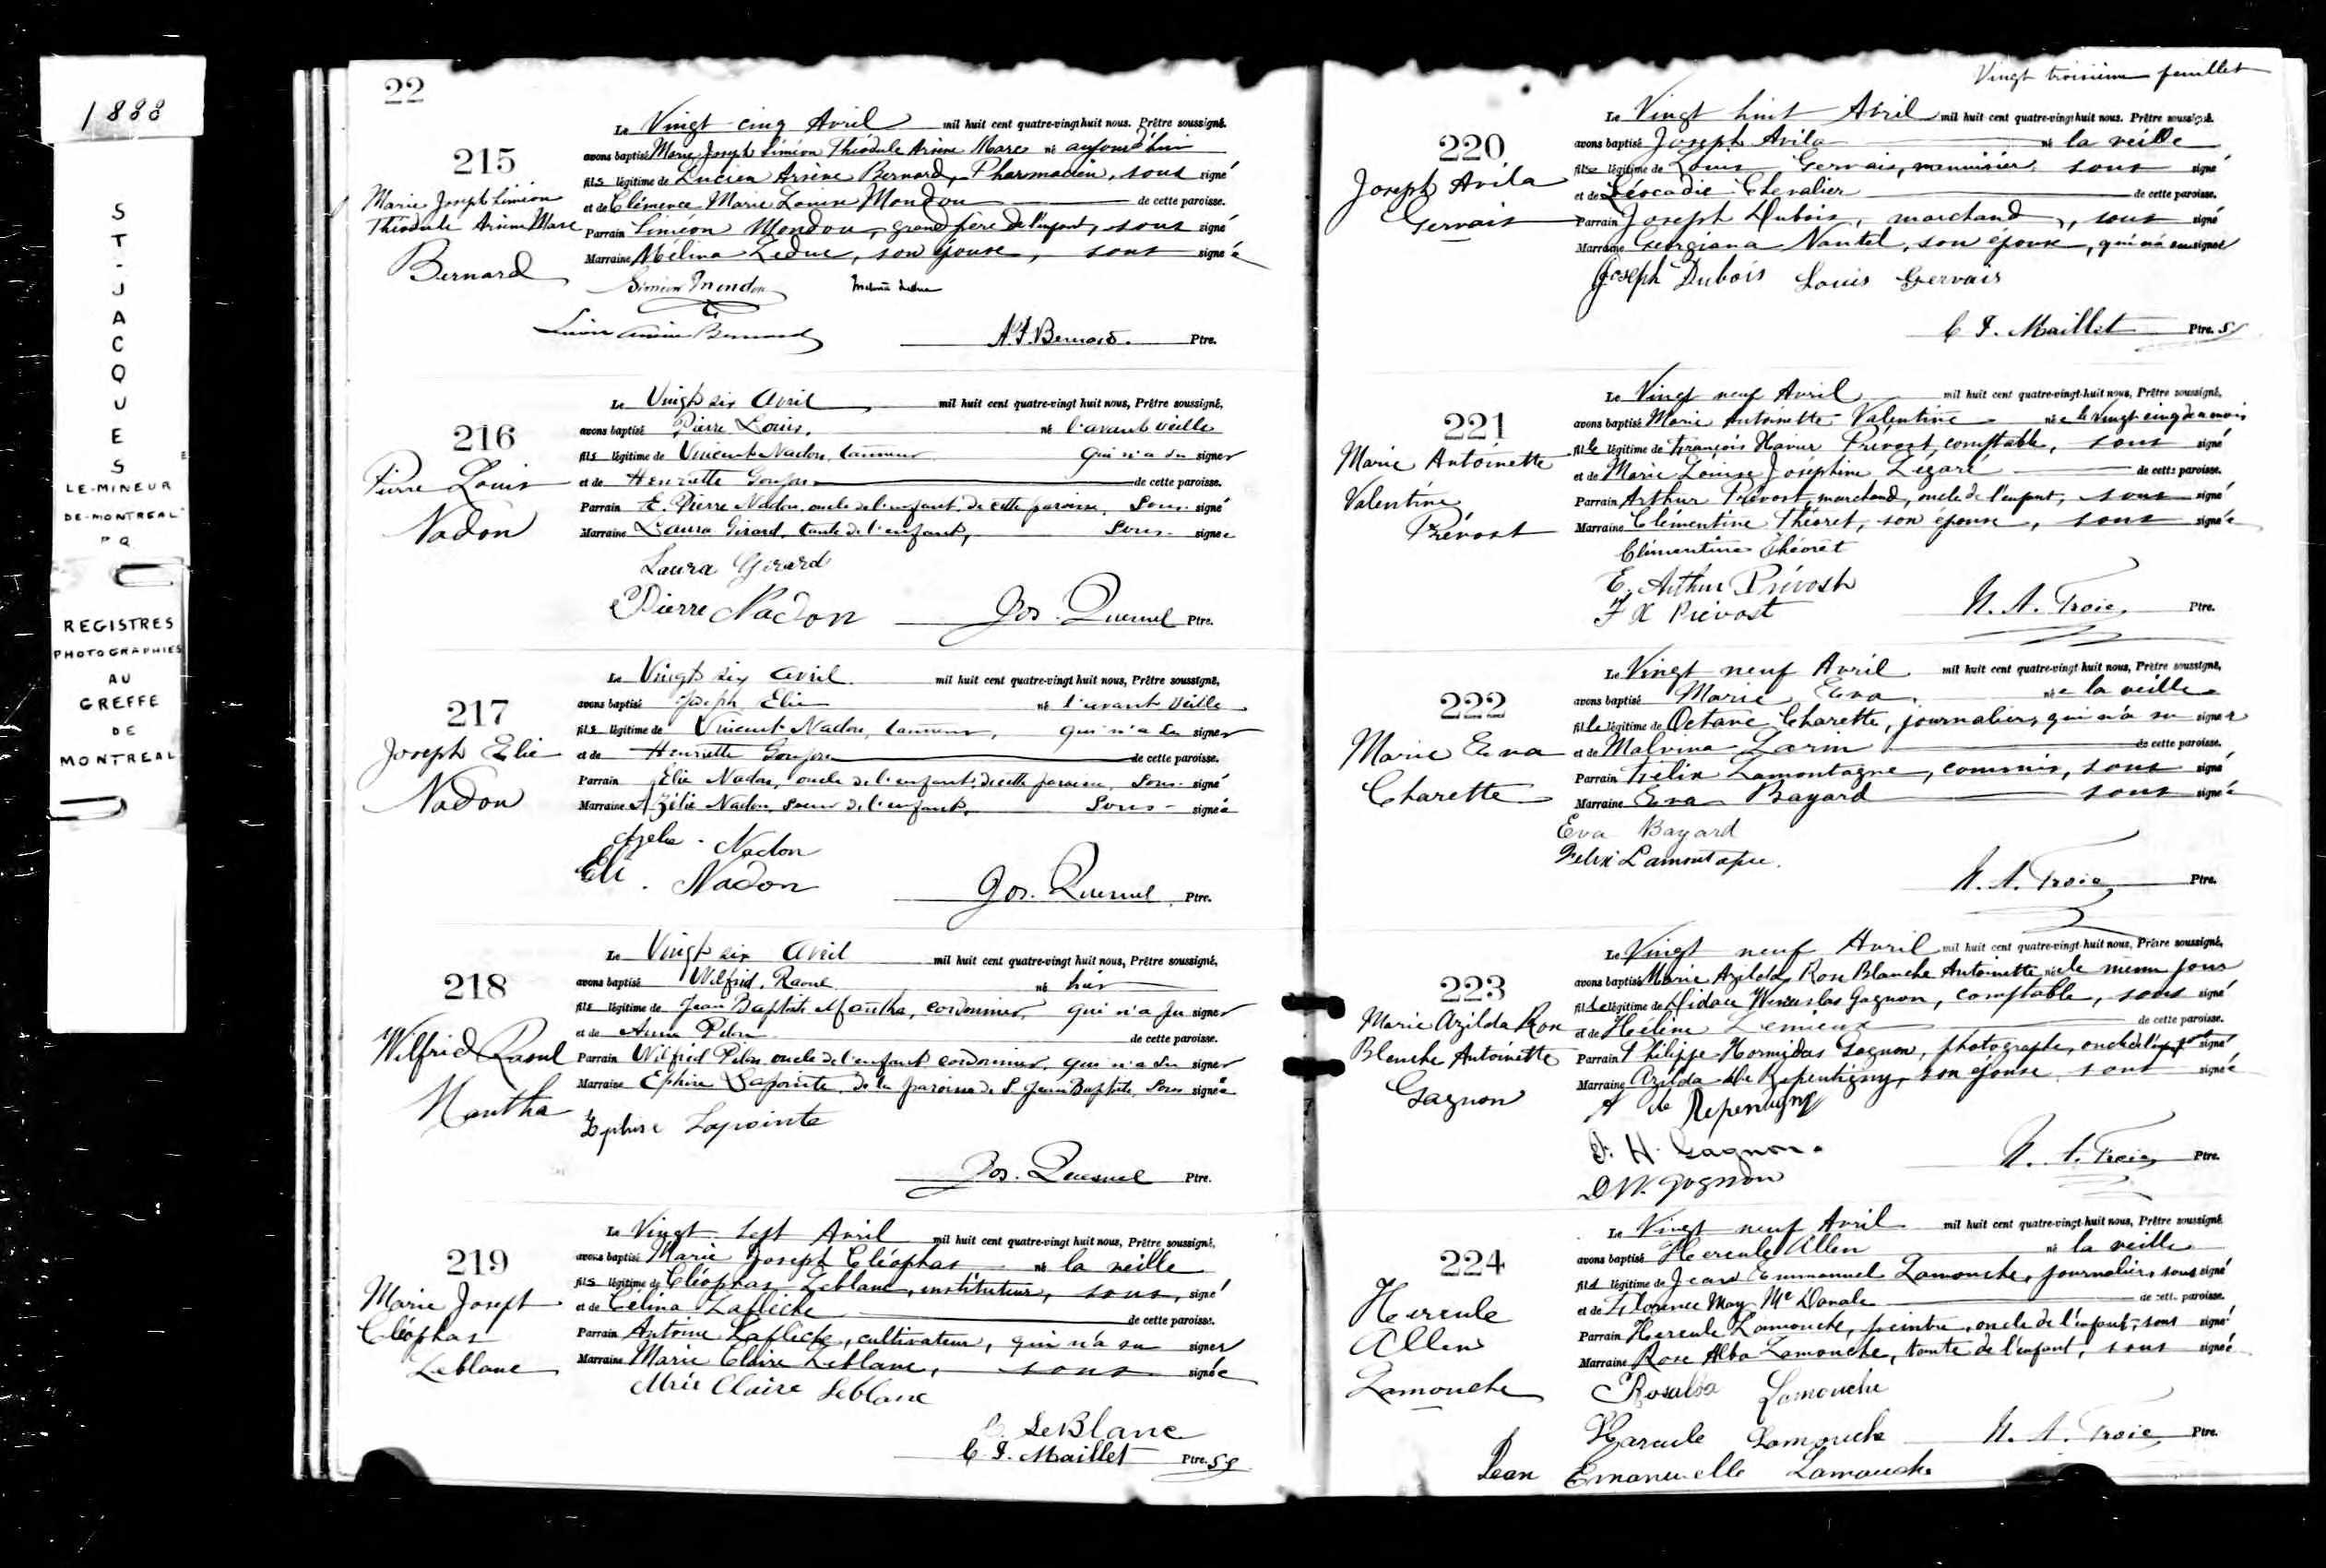 1888
ST-JACQUES
LE-MINEUR
DE-MONTREAL
P Q
REGISTRES
PHOTOGRAPHIES
AU
GREFFE
DE
MONTREAL
22
215
Marie Joseph Siméon
Théodule Arsène Marc
Bernard
Le Vingt cinq Avril mil huit cent quatre-vingt huit nous. Prêtre soussigné.
avons baptisé Marie Joseph Siméon Théodule Arsène Marc né aujourd'hui
fils légitime de Lucien Arsène Bernard, Pharmacien, sous signé
et de Clémence Marie Louise Mondou de cette paroisse.
Parrain Siméon Mondou, grand père de l'enfant, sous signé
Marraine Mélina Leduc, son épouse, sous signée
Siméon Mondou Melina Leduc
Lucien Arsène Bernard
Bernard Ptre.
216
Pierre Louis
Nadon
Le Vingt six Avril mil huit cent quatre-vingt huit nous, Prêtre soussigné,
avons baptisé Pierre Louis, né l'avant veille
fils légitime de Vincent Nadon, tanneur qui n'a su signer
et de Henriette de cette paroisse.
Parrain E. Pierre Nadon, oncle de l'enfant, de cette paroisse, Sous- signé
Marraine Laura Girard, tante de l'enfant, Sous- signée
Laura Girard
Pierre Nadon Jos. Quesnel Ptre.
217
Joseph Elie
Nadon
Le Vingt six Avril mil huit cent quatre-vingt huit nous, Prêtre soussigné,
avons baptisé Joseph Elie né l'avant veille
fils légitime de Vincent Nadon, tanneur, qui n'a su signer
et de Henriette de cette paroisse.
Parrain Elie Nadon, oncle de l'enfant, de cette paroisse, Sous- signé
Marraine Azélie Nadon, soeur de l'enfant, Sous- signée
Azelie Nadon
Eli Nadon
Jos. Quesnel Ptre.
218
Wilfrid Raoul
Mantha
Le Vingt six Avril mil huit cent quatre-vingt huit nous, Prêtre soussigné,
avons baptisé Wilfrid Raoul né hier
fils légitime de Jean Baptiste Mantha, cordonnier, qui n'a su signer
et de Anna Pilon de cette paroisse.
Parrain Wilfrid Pilon, oncle de l'enfant, cordonnier, qui n'a su signer
Marraine Ephire Lapointe, de la paroisse de St Jean Baptiste, Sous signée
Ephire Lapointe
Jos. Quesnel Ptre.
219
Marie Joseph
Cléophas
Leblanc
Le Vingt sept Avril mil huit cent quatre-vingt huit nous, Prêtre soussigné,
avons baptisé Marie Joseph Cléophas né la veille
fils légitime de Cléophas Leblanc, instituteur, sous, signé
et de Célina Laflèche de cette paroisse.
Parrain Antoine Laflèche, cultivateur, qui n'a su signer
Marraine Marie Claire Leblanc, sous signée
Mrie Claire Leblanc
C. LeBlanc
C. J. Maillet Ptre. SS
Vingt troisième feuillet
220
Joseph Avila
Gervais
Le Vingt huit Avril mil huit cent quatre-vingt huit nous. Prêtre soussigné.
avons baptisé Joseph Avila né la veille
fils légitime de Louis Gervais, menuisier sous signé
et de Léocadie Chevalier de cette paroisse.
Parrain Joseph Dubois, marchand, sous signé
Marraine Georgiana Nantel, son épouse, qui n'a su signer
Joseph Dubois Louis Gervais
C. J. Maillet Ptre. SS
221
Marie Antoinette
Valentine
Prévost
Le Vingt neuf Avril mil huit cent quatre-vingt-huit nous, Prêtre soussigné,
avons baptisé Marie Antoinette Valentine née le vingt cinq du mois
fille légitime de François Xavier Prévost, comptable, sous signé
et de Marie Louise Josephine Legaré de cette paroisse.
Parrain Arthur Prévost, marchand, oncle de l'enfant, sous signé
Marraine Clémentine Théoret, son épouse, sous signée
Clémentine Théorêt
E. Arthur Prévost
F X Prévost N. A. Troie, Ptre.
222
Marie Eva
Charette
Le Vingt neuf Avril mil huit cent quatre-vingt huit nous, Prêtre soussigné,
avons baptisé Marie Eva, née la veille
fille légitime de Octave Charette, journalier, qui n'a su signer
et de Malvina Larin de cette paroisse.
Parrain Félix Lamontagne, commis, sous signé
Marraine Eva Bayard sous signée
Eva Bayard
Felix Lamontagne.
N. A. Troie, Ptre.
223
Marie Azilda Rose
Blanche Antoinette
Gagnon
Le Vingt neuf Avril mil huit cent quatre-vingt-huit nous, Prêtre soussigné,
avons baptisé Marie Azilda Rose Blanche Antoinette née le même jour
fille légitime de Wenceslas Gagnon, comptable, sous signé
et de Hélène Lemieux de cette paroisse.
Parrain Philippe-Hormidas Gagnon, photographe, oncle de l'enfant signé
Marraine Azilda de Repentigny, son épouse, sous signée
A de Repentigny
P. H. Gagnon.
D W. Gagnon
N. A. Troie, Ptre.
224
Hercule
Allen
Lamouche
Le Vingt neuf Avril mil huit cent quatre-vingt-huit nous, Prêtre soussigné,
avons baptisé Hercule Allen né la veille
fils légitime de Jean Emmanuel Lamouche, journalier, sous signé
et de Florence May de cette paroisse.
Parrain Hercule Lamouche, peintre, oncle de l'enfant, sous signé
Marraine Rose Alba Lamouche, tante de l'enfant, sous signée
Rosalba Lamouche
Harcule Lamouche N. A. Troie, Ptre.
Jean Emanuelle Lamouche